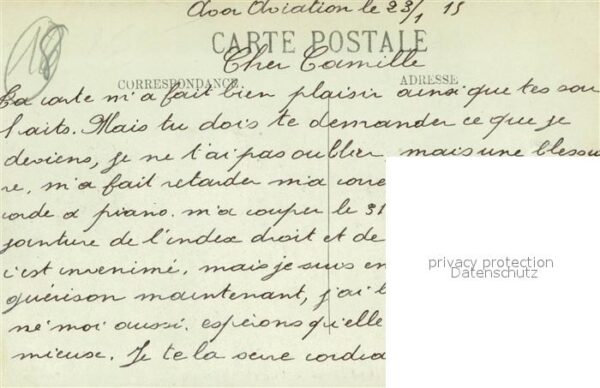 Avor Aviation le 23/1 15
18
CARTE POSTALE
Cher Camille
CORRESPONDANCE
ADRESSE
Ta carte m'a fait bien plaisir ainsi que tes sou
haits. Mais tu dois te demander ce que je
deviens, je ne t'ai pas oublier mais une blessu
re, m'a fait retarder ma corre
corde a piano. m'a couper le 31
jointure de l'index droit et de
c'est invenimé, mais je suis en
guérison maintenant, j'ai
né moi aussi. espérons qu'elle
mieuse. Je te la serre cordia
privacy protection
Datenschutz